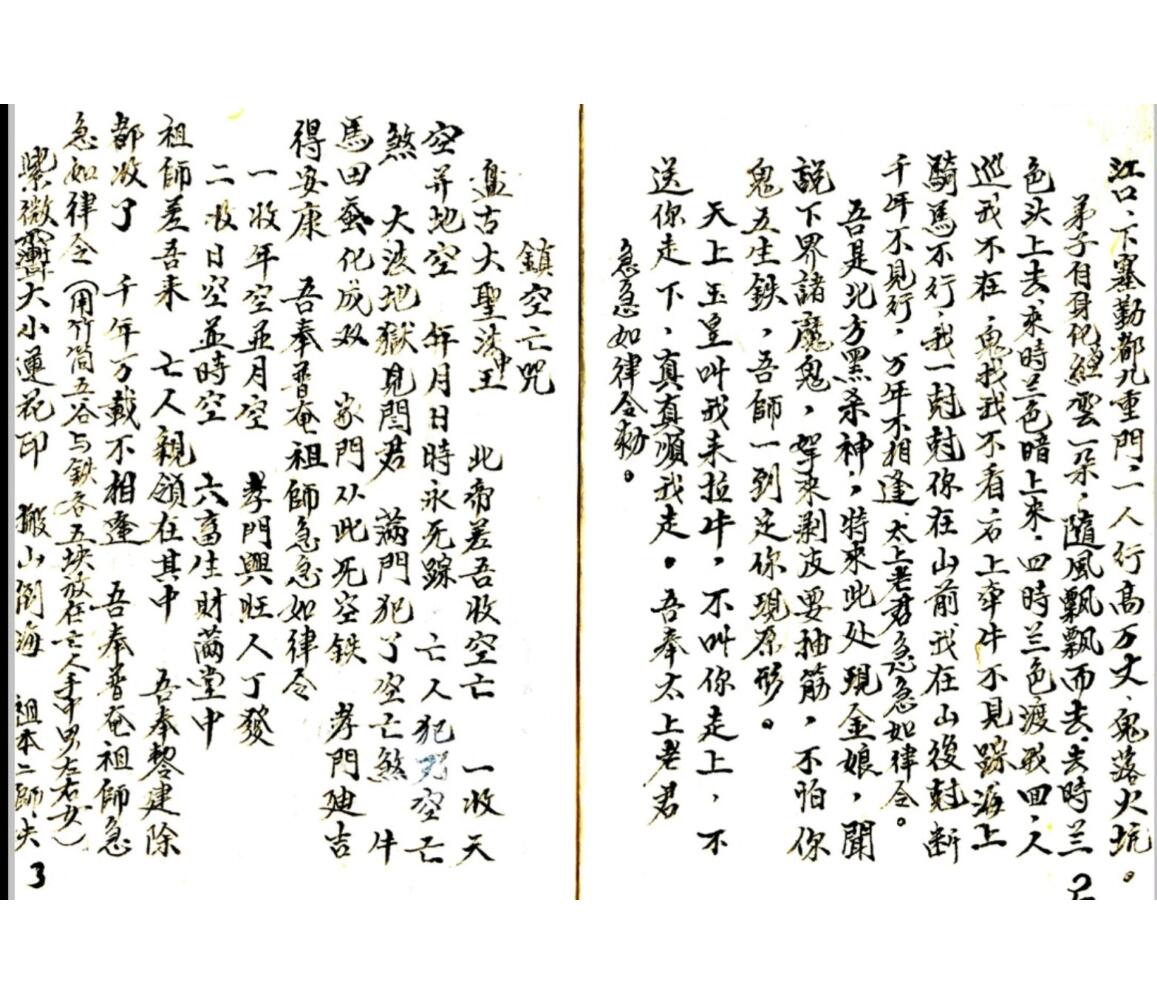 江口、下塞勤都九重門、二人行高万丈、鬼落火坑。
弟子自身化雲一朵、隨風飄飄而去、去時兰
色头上去、來時兰色暗上来、四時兰色渡我回、人
巡我不在、鬼找我不看、石上牽牛不見踪、海上
騎馬不行、我一尅尅你在山前我在山後尅断
千年不見行，万年不相逢、太上老君急急如律令。
吾是北方黑杀神，特來此处現金娘，聞
說下界諸魔鬼，拏來剥皮要抽筋，不怕你
鬼五生鉄，吾師一到定你現原形。
天上玉皇叫我来拉牛，不叫你走上，不
送你走下，真真順我走。吾奉太上老君
急急如律令勅。
2
鎮空亡咒
盘古大聖法中王 北帝差吾收空亡 一收天
空并地空 年月日時永死踪 亡人犯死空亡
煞 大法地獄見閻君 滿門犯了空亡煞 牛
馬田蚕化成双 家門从此死空鉄 孝門廸吉
得安康 吾奉普奄祖師急急如律令
一收年空並月空 孝門興旺人丁發
二收日空並時空 六畜生財滿堂中
祖師差吾来 亡人親領在其中 吾奉黎建除
都收了 千年万載不相逢 吾奉普奄祖師急
急如律令（用竹筒五谷与鉄各五块放在亡人手中男左右女）
紫微大小蓮花印 搬山倒海 祖本二師夫
3